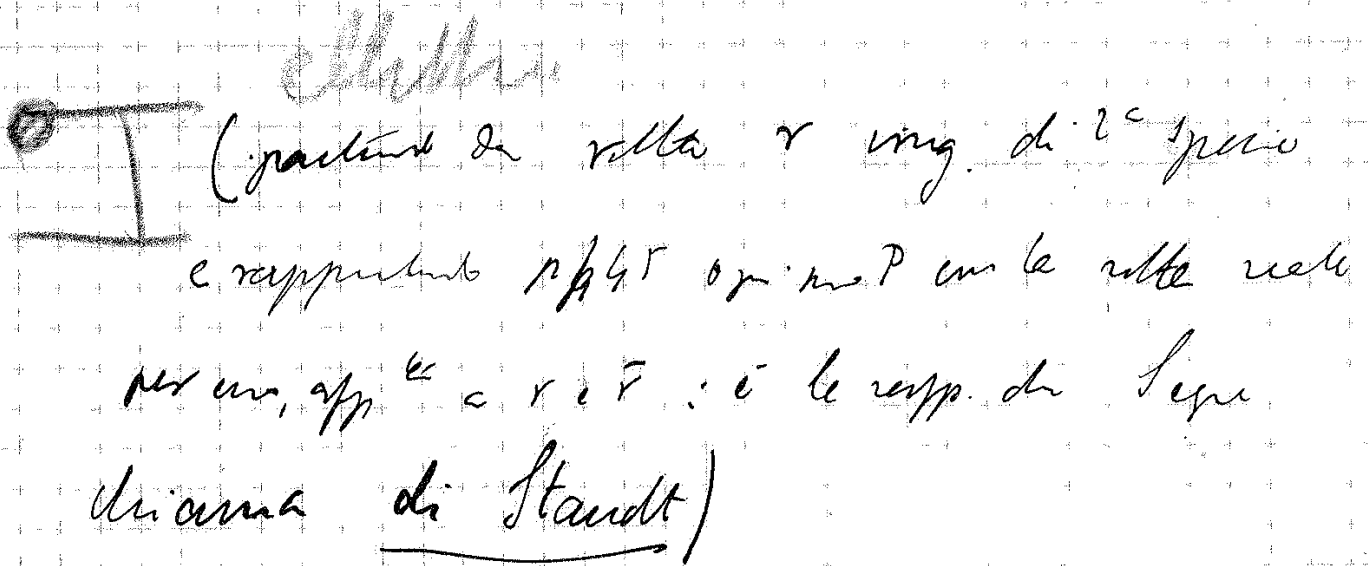 ellittica
(partendo da retta r imag. di 2ª specie
e rappresentando ogni suo P con la retta reale
per esso, app^te a r e r̄ : è la rapp. che Segre
chiama di Staudt)